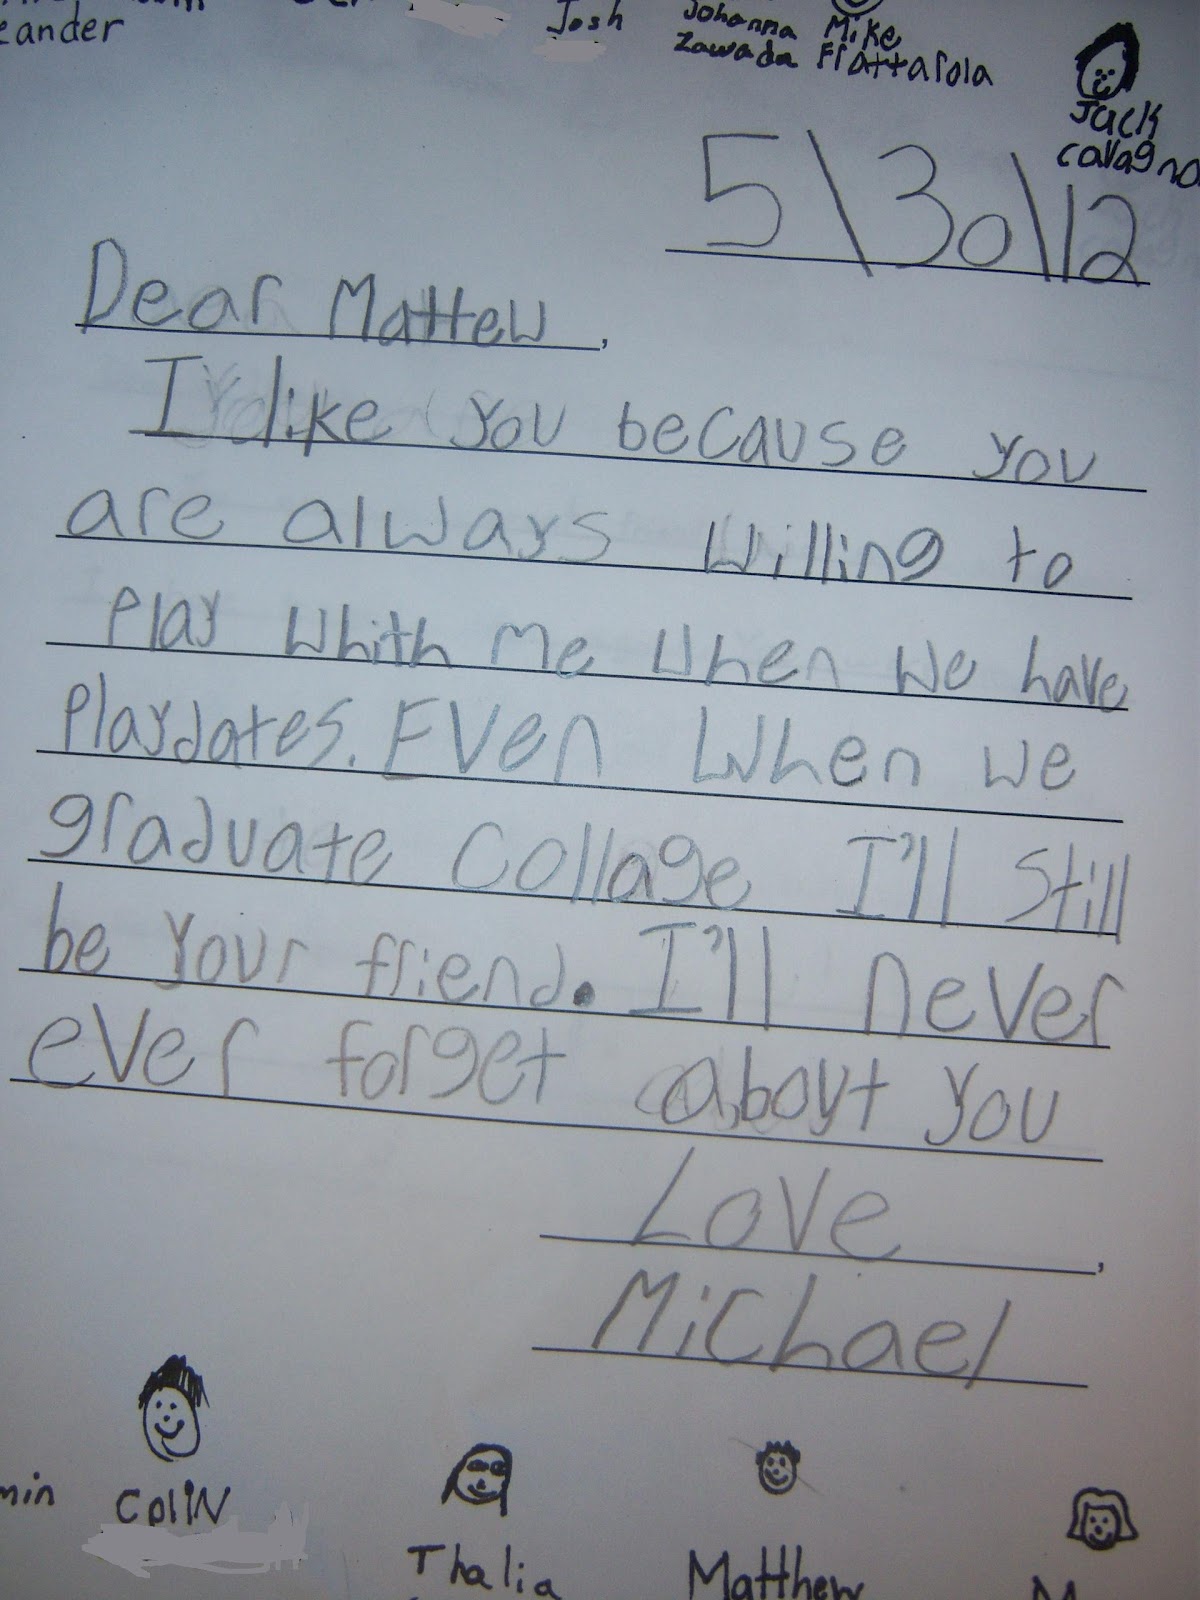 eander
Josh
Johanna
Zawada
Mike
Frattarola
Jack
Cavagno
5\30\12
Dear Mattew,
I like you because you
are always willing to
play whith me when we have
playdates. Even when we
graduate Collage I'll still
be your friend. I'll never
ever forget about you
Love,
Michael
min
COlIN
Thalia
Matthew